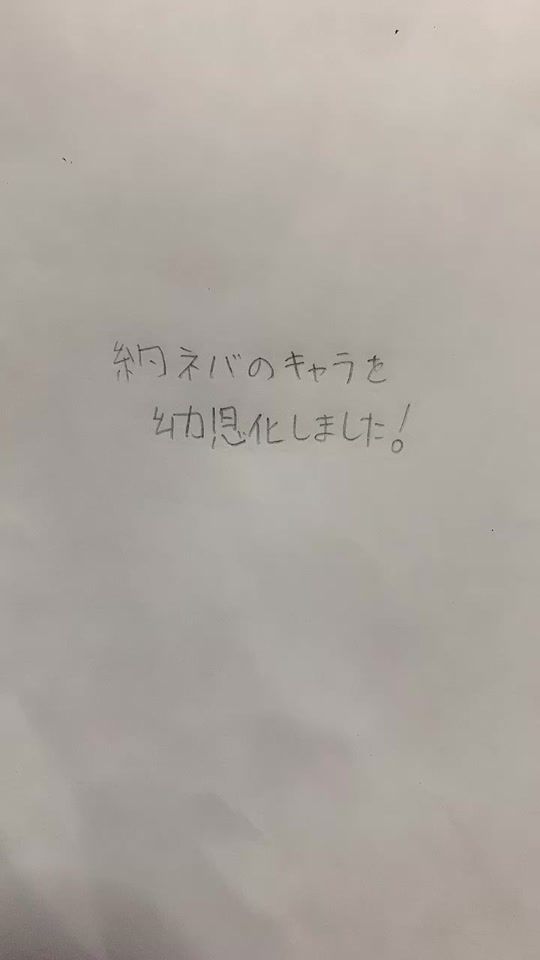 約ネバのキャラを
幼児化しました!